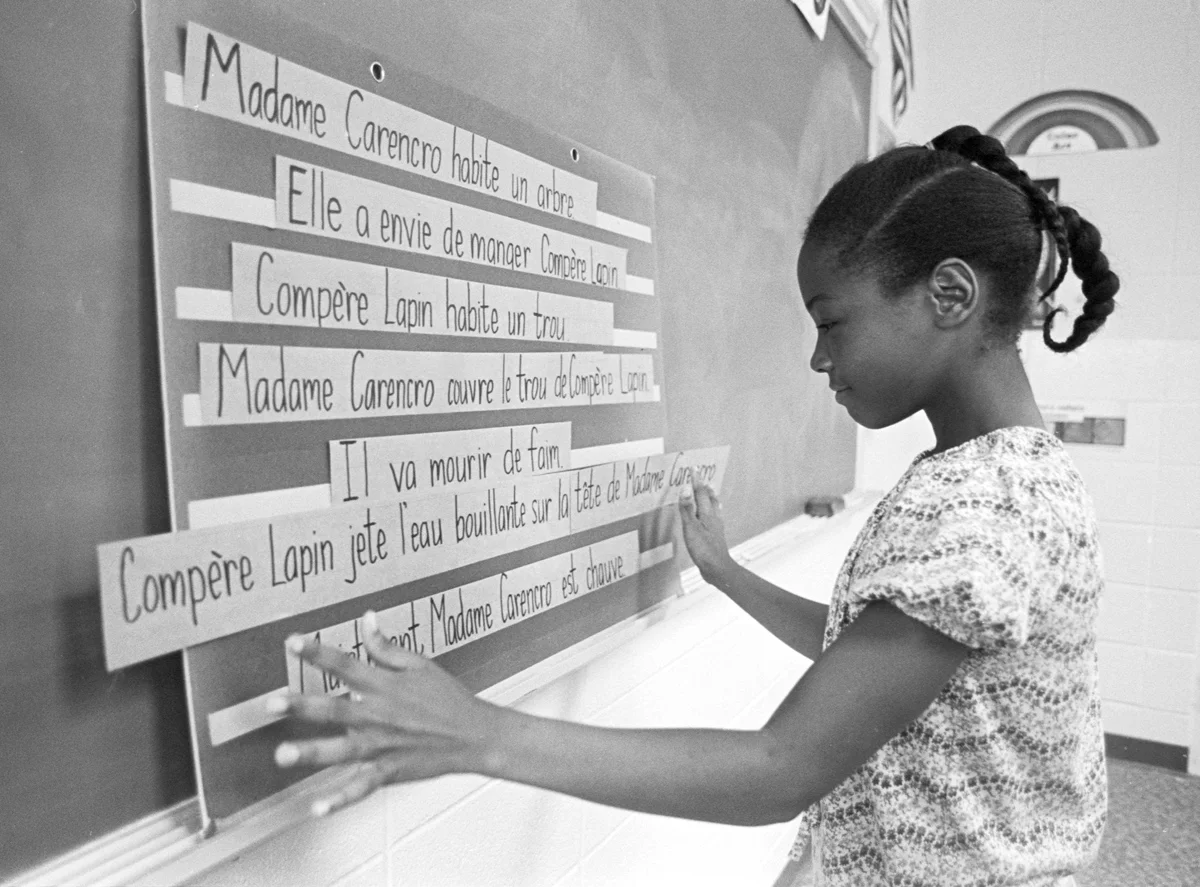 Madame Carencro habite un arbre.
Elle a envie de manger Compère Lapin.
Compère Lapin habite un trou.
Madame Carencro couvre le trou de Compère Lapin.
Il va mourir de faim.
Compère Lapin jete l'eau bouillante sur la tête de Madame Carencro
Maintenant Madame Carencro est chauve.